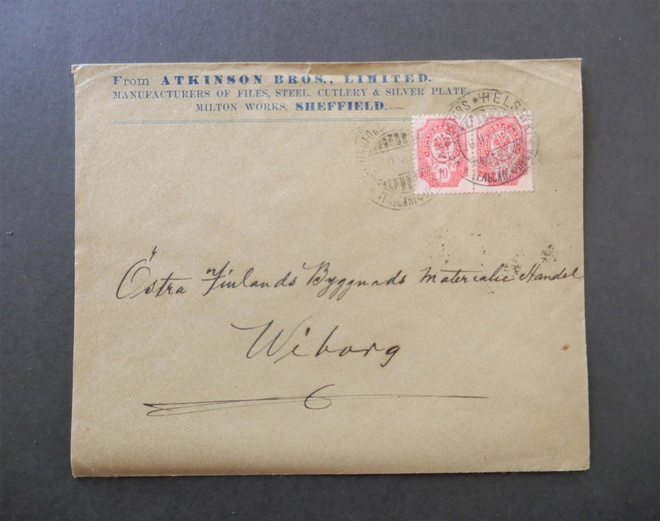 From ATKINSON BROS., LIMITED.
MANUFACTURERS OF FILES, STEEL, CUTLERY & SILVER PLATE,
MILTON WORKS, SHEFFIELD.
10
Östra Finlands Byggnads Materialie Handel
Wiborg